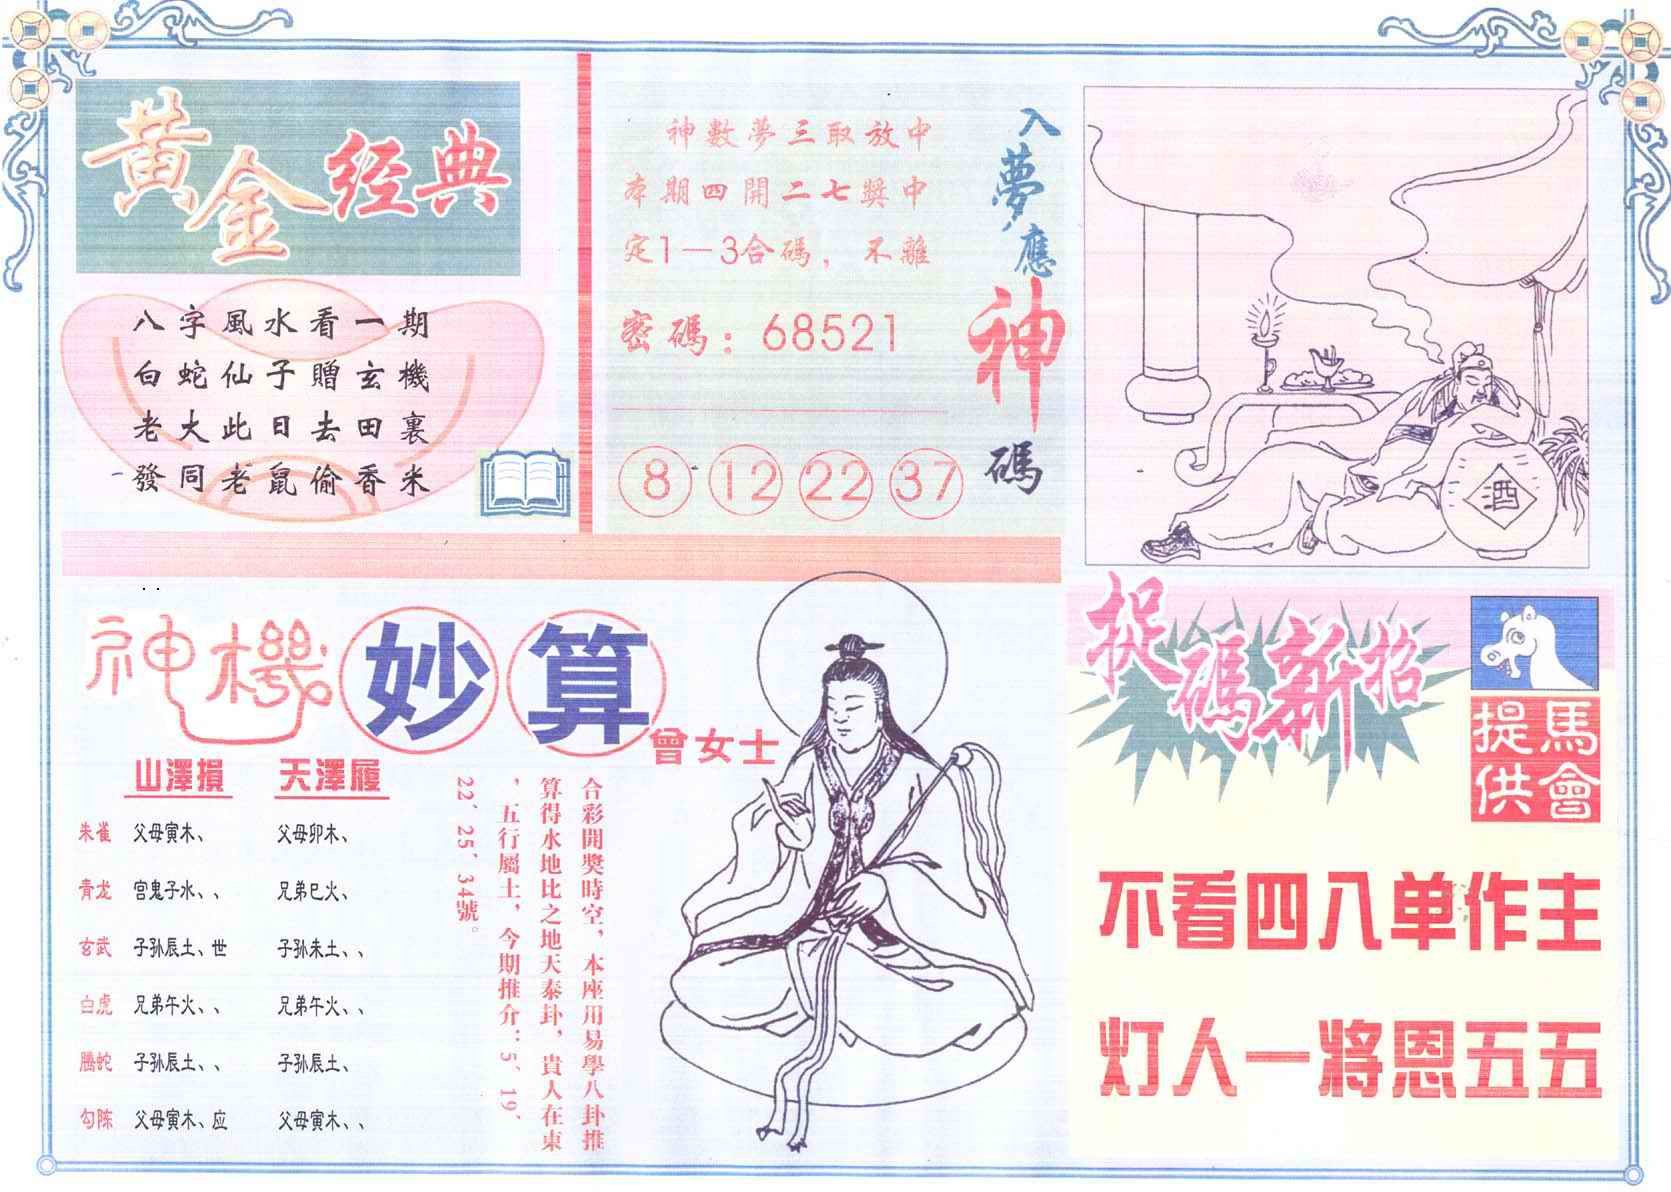 黃金经典
八字風水看一期
白蛇仙子贈玄機
老大此日去田裏
發同老鼠偷香米
神數夢三取放中
本期四開二七獎中
定1—3合碼，不離
密碼：68521
8 12 22 37
入夢應神碼
酒
神機妙算
曾女士
山澤損 天澤履
朱雀 父母寅木、 父母卯木、
青龙 宫鬼子水、、 兄弟巳火、
玄武 子孙辰土、世 子孙未土、、
白虎 兄弟午火、、 兄弟午火、、
螣蛇 子孙辰土、、 子孙辰土、
勾陈 父母寅木、应 父母寅木、、
合彩開獎時空，本座用易學八卦推
算得水地比之地天泰卦，貴人在東
，五行屬土，今期推介：5、19、
22、25、34號。
捉碼新招
馬會
提供
不看四八单作主
灯人一將恩五五